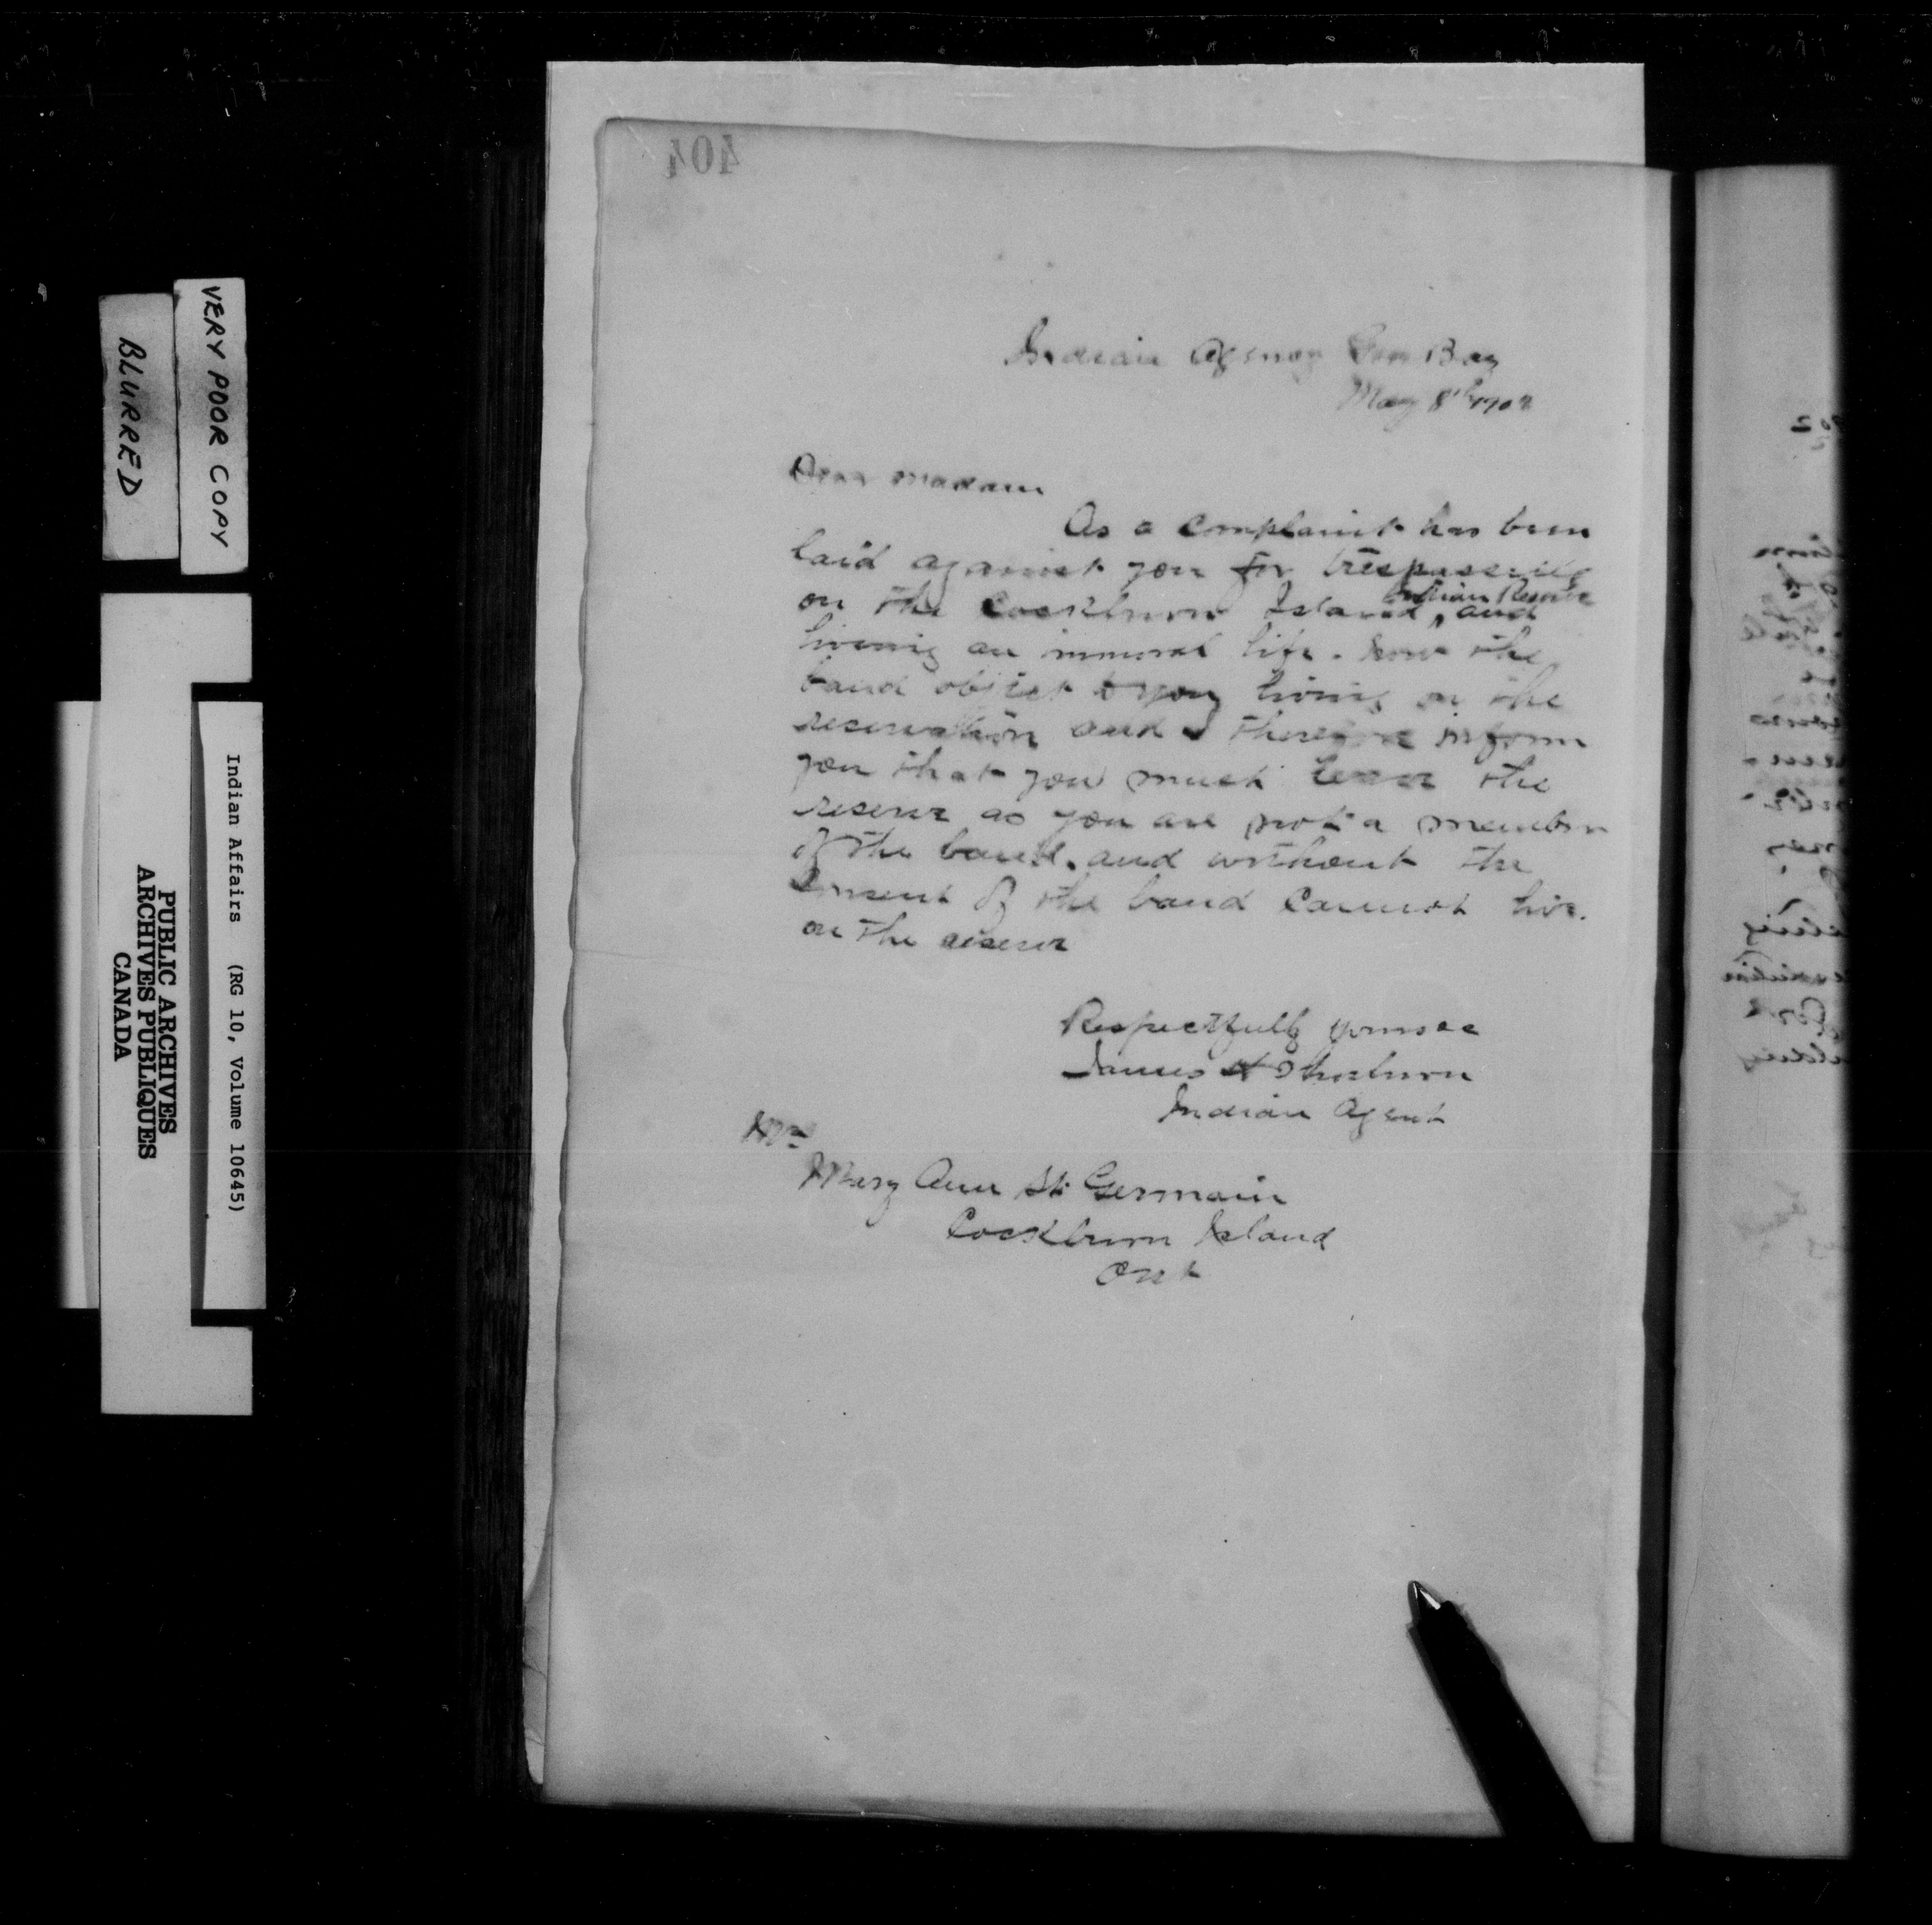 404
Indian Agency Gore Bay
May 8th 1902
Dear Madam
As a complaint has been
laid against you for trespassing
on the Cockburn Island Indian Reserve, and
living an immoral life. now the
band object to you living on the
reservation and I therefore inform
you that you must leave the
reserve as you are not a member
of the band, and without the
Consent of the band Cannot live
on the reserve
Respectfully yours
James H Thorburn
Indian Agent
Mrs
Mary Ann St Germain
Cockburn Island
Ont
VERY POOR COPY
BLURRED
Indian Affairs (RG 10, Volume 10645)
PUBLIC ARCHIVES
ARCHIVES PUBLIQUES
CANADA